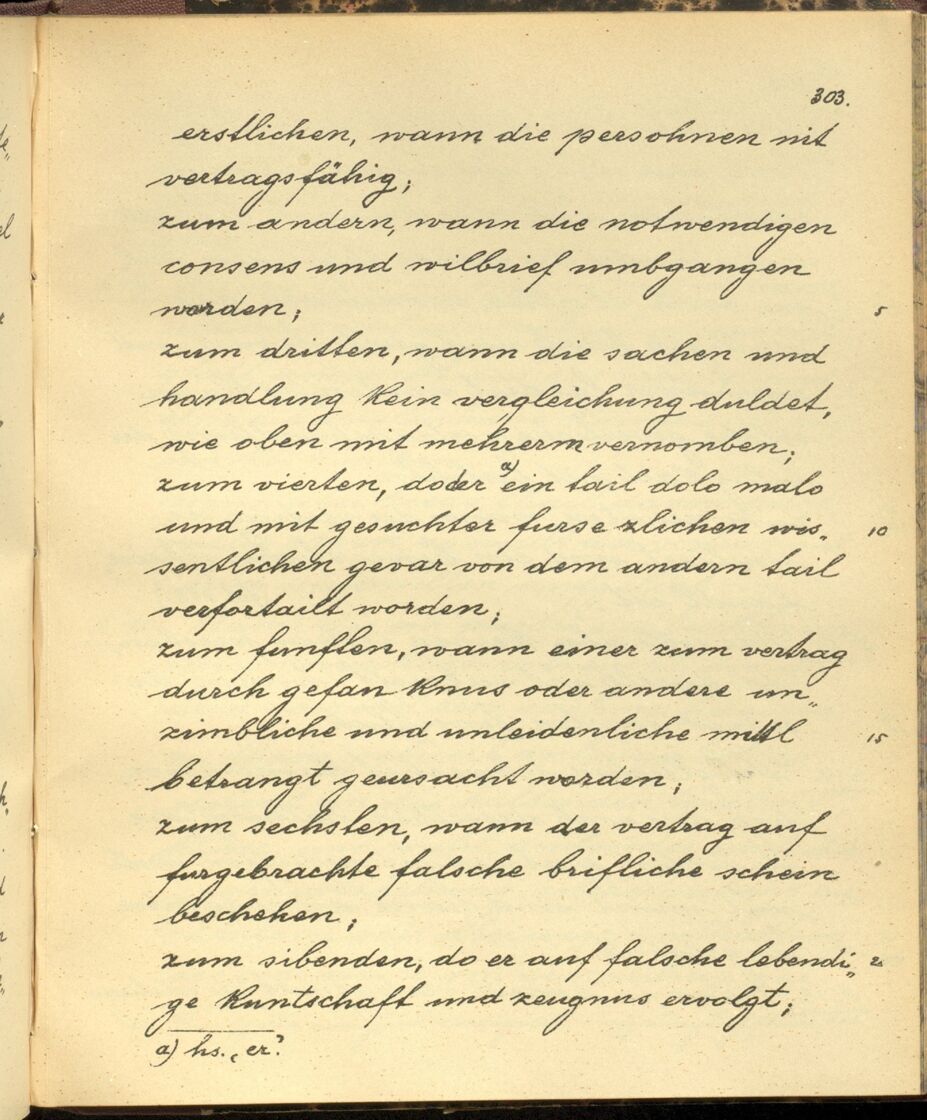 303.
erstlichen, wann die persohnen nit
vertragsfähig;
zum andern, wann die notwendigen
consens und wilbrief umbgangen
worden;
5
zum dritten, wann die sachen und
handlung kein vergleichung duldet,
wie oben mit mehrerm vernomben;
zum vierten, do der a) ein tail dolo malo
und mit gesuchter furse zlichen wis„
10
sentlichen gevar von dem andern tail
verfortailt worden;
zum funften, wann einer zum vertrag
durch gefan knus oder andere un„
zimbliche und unleidenliche mittl
15
betrangt geursacht worden;
zum sechsten, wann der vertrag auf
furgebrachte falsche brifliche schein
beschehen;
zum sibenden, do er auf falsche lebendi„
ge kuntschaft und zeugnus ervolgt;
a) hs. „er“.